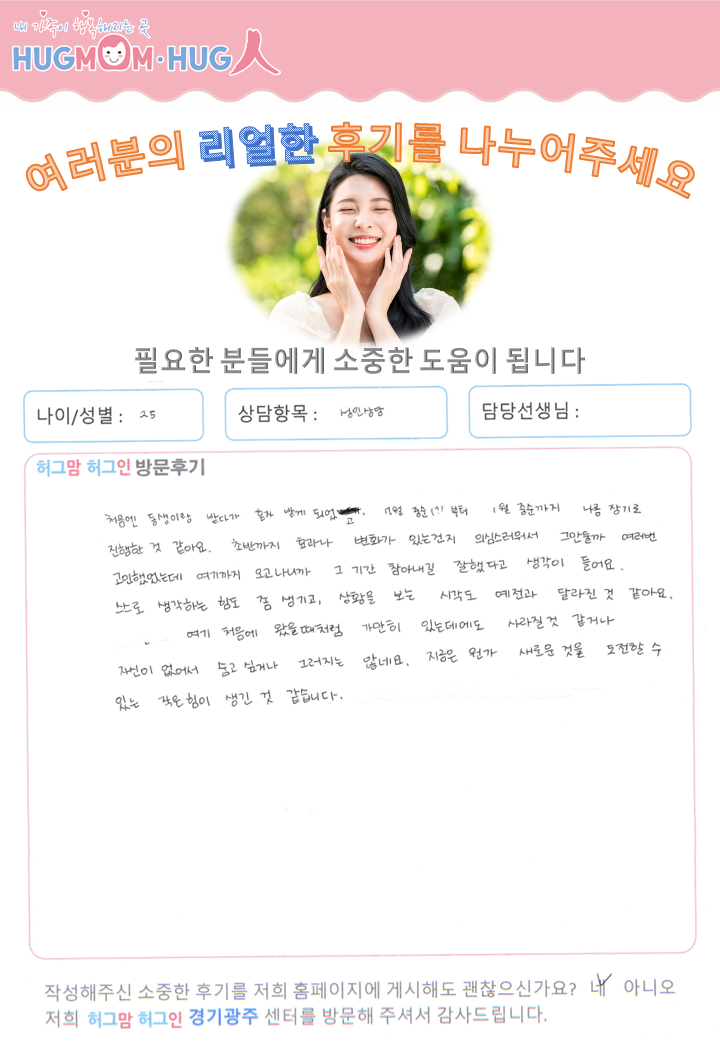 내 가족이 행복해지는 곳
HUGMOM·HUG人
여러분의 리얼한 후기를 나누어주세요
필요한 분들에게 소중한 도움이 됩니다
나이/성별 : 25
상담항목 : 성인상담
담당선생님 :
허그맘 허그인 방문후기
처음엔 동생이랑 받다가 혼자 받게 되었고. 12월 중순(?) 부터 1월 중순까지 나름 장기로
진행한 것 같아요. 초반까지 효과나 변화가 있는건지 의심스러워서 그만둘까 여러번
고민했었는데 여기까지 오고나니까 그 기간 참아내길 잘했다고 생각이 들어요.
스스로 생각하는 힘도 좀 생기고, 상황을 보는 시각도 예전과 달라진 것 같아요.
여기 처음에 왔을때처럼 가만히 있는데에도 사라질것 같거나
자신이 없어서 숨고 싶거나 그러지는 않네요. 지금은 뭔가 새로운 것을 도전할 수
있는 작은 힘이 생긴 것 같습니다.
작성해주신 소중한 후기를 저희 홈페이지에 게시해도 괜찮으신가요? 네 아니오
저희 허그맘 허그인 경기광주 센터를 방문해 주셔서 감사드립니다.